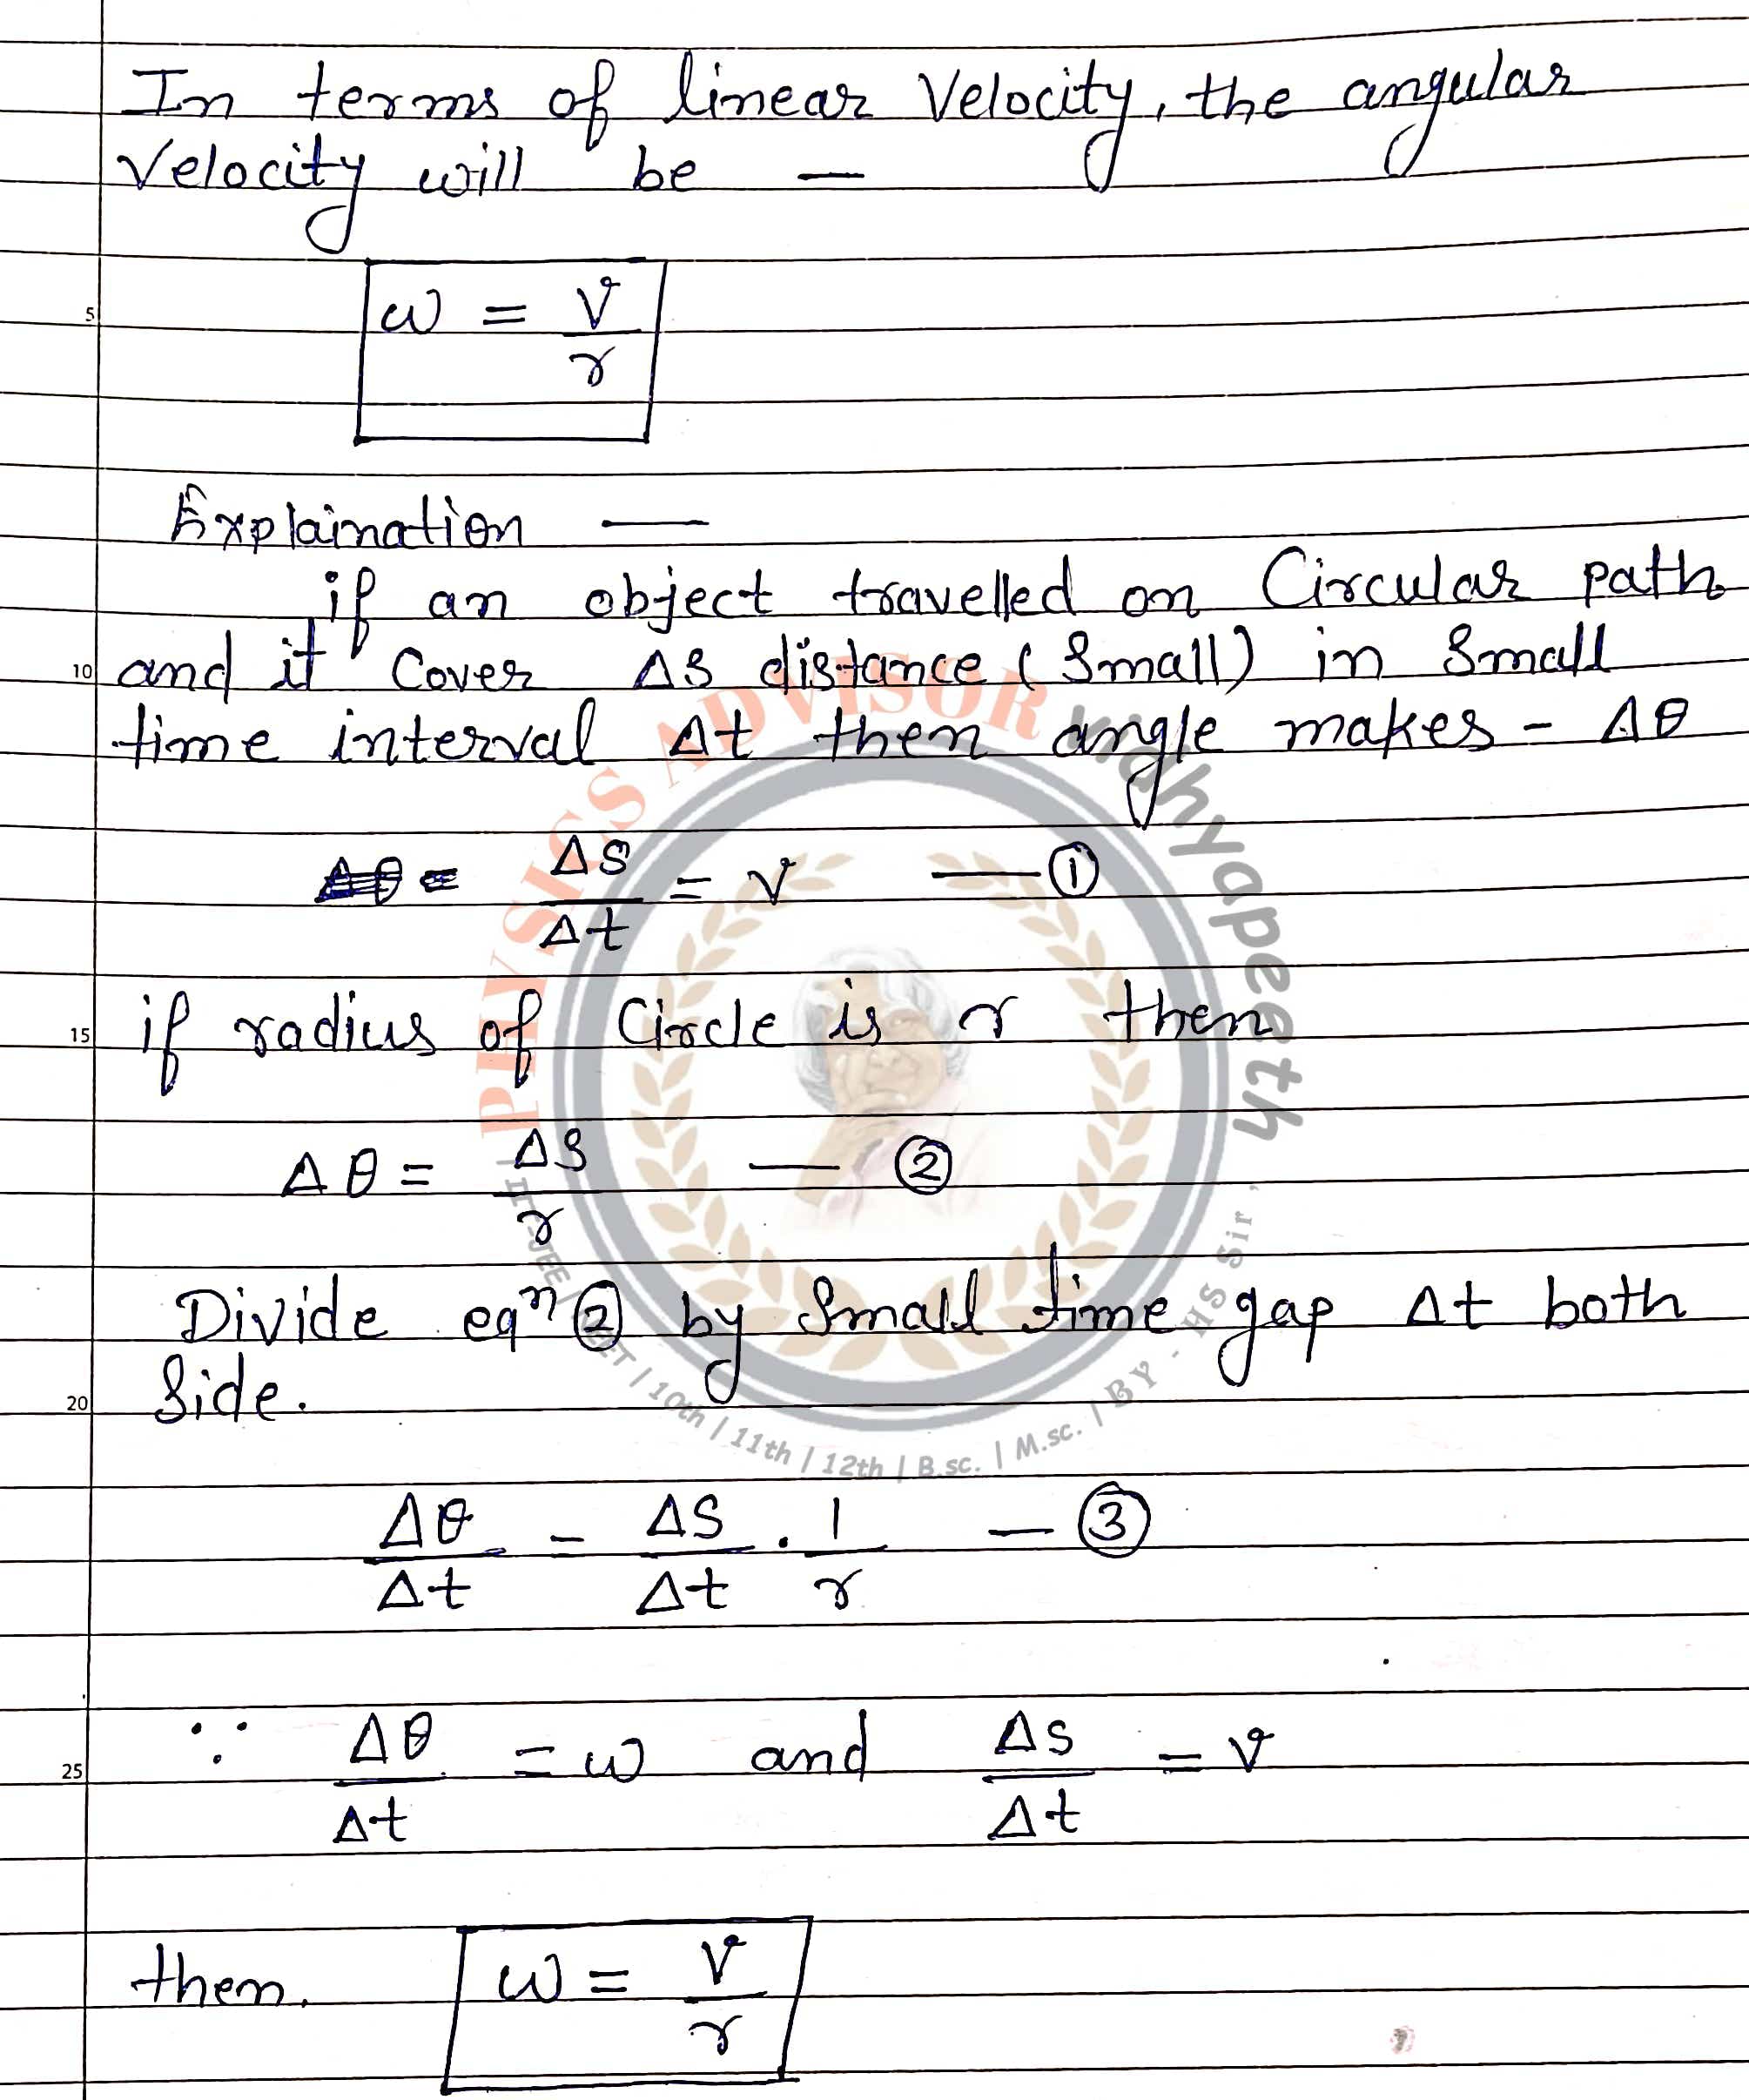 In terms of linear Velocity, the angular
Velocity will be —
ω = v/r
5
Explaination —
if an object travelled on Circular path
10
and it Cover ΔS distance (Small) in Small
time interval Δt then angle makes - Δθ
ΔS/Δt = v — ①
15
if radius of Circle is r then
Δθ = ΔS/r — ②
Divide eqn ② by Small time gap Δt both
20
Side.
Δθ/Δt = ΔS/Δt . 1/r — ③
25
∵ Δθ/Δt = ω and ΔS/Δt = v
then, ω = v/r
PHYSICS ADVISOR Vidhyapeeth
| IIT-JEE | NEET | 10th | 11th | 12th | B.sc. | M.sc. | BY - HS Sir